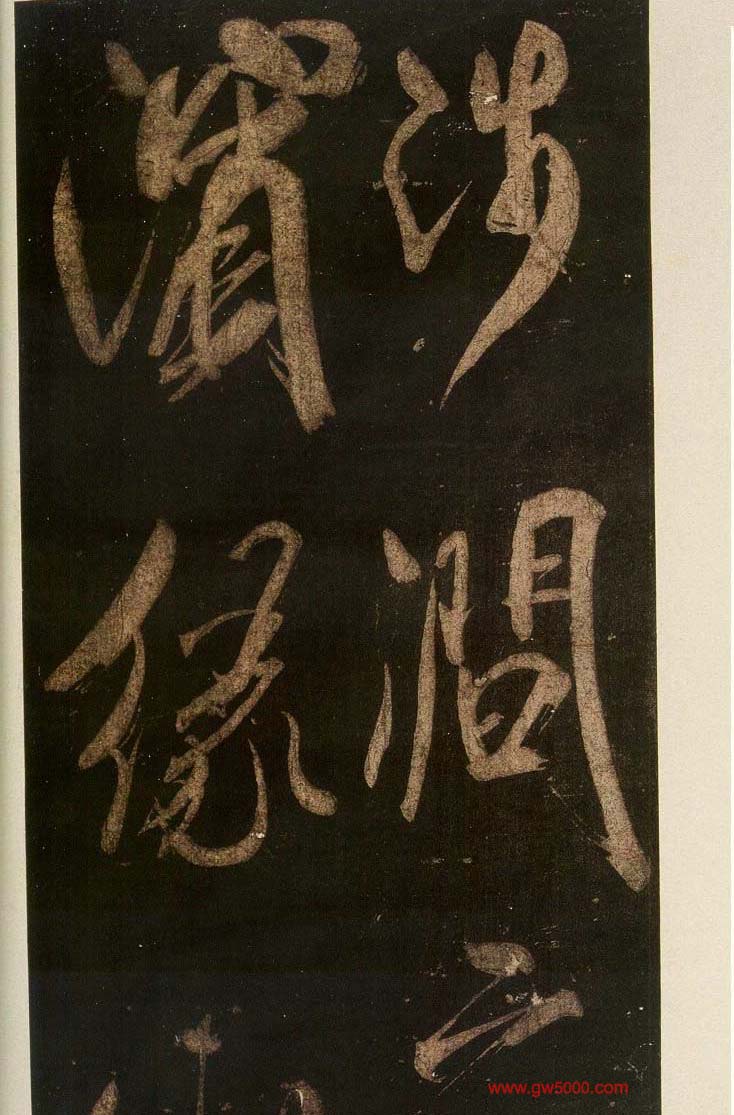 涉澗之
濱緣
www.gw5000.com